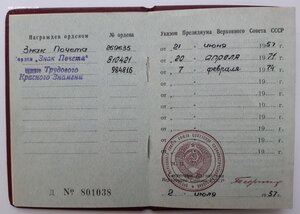 Награжден орденом № ордена
Знак Почета 269635
орден „Знак Почета" 810421
Трудового 984816
Красного Знамени
Д № 801038
Указом Президиума Верховного Совета СССР
от 21 июня 1957 г.
от 20 апреля 71 г.
от 7 февраля 74 г.
от г.
от г.
от г.
М. П.
2 июля 1957 г.